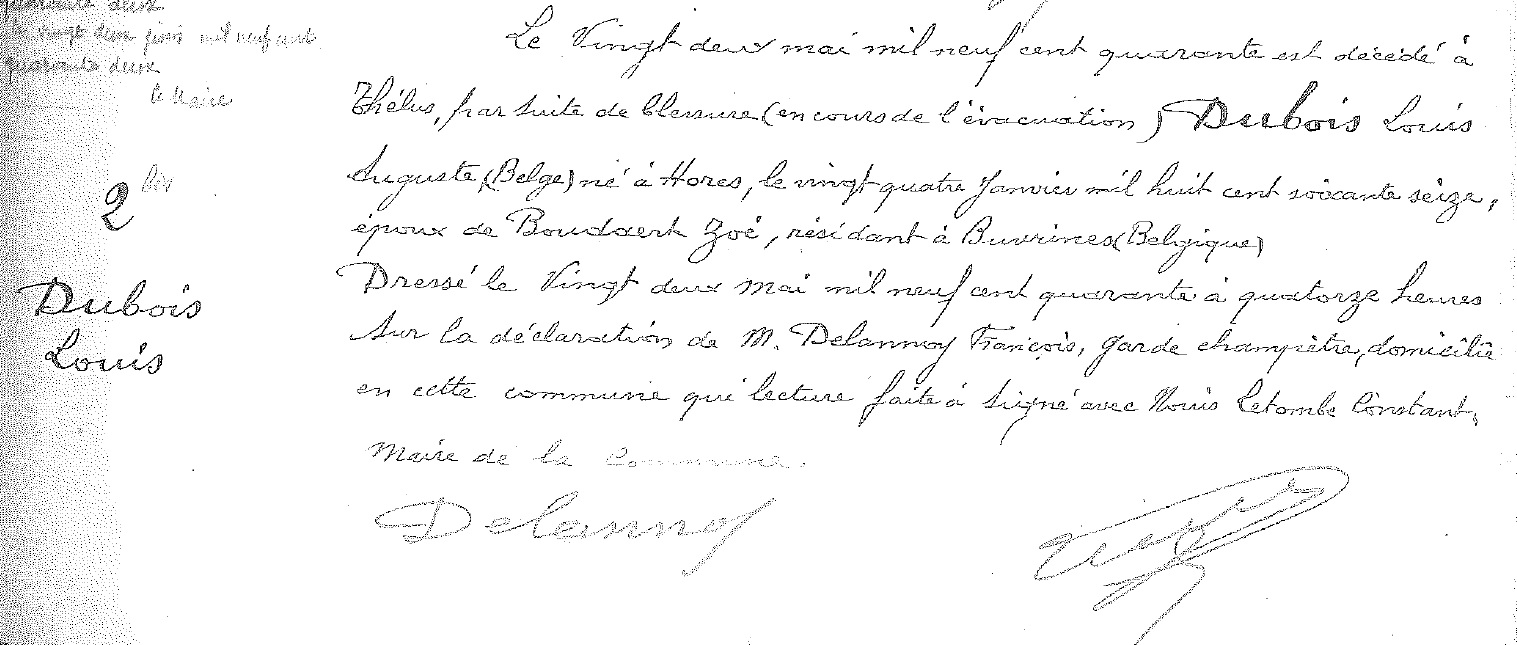 quarante deux
vingt deux juin mil neuf cent
quarante deux
le Maire
2 bis
Dubois
Louis
Le Vingt deux mai mil neuf cent quarante est décédé à
Thélus, par suite de blessure (en cours de l'évacuation) Dubois Louis
Auguste, (Belge) né à Hores, le vingt quatre Janvier mil huit cent soixante seize,
époux de Boudaert Zoé, résidant à Buvrines (Belgique)
Dressé le Vingt deux mai mil neuf cent quarante à quatorze heures
sur la déclaration de M. Delannoy François, garde champêtre, domicilié
en cette commune qui lecture faite à signé avec Nous Letombe Constant,
Maire de la Commune.
Delannoy